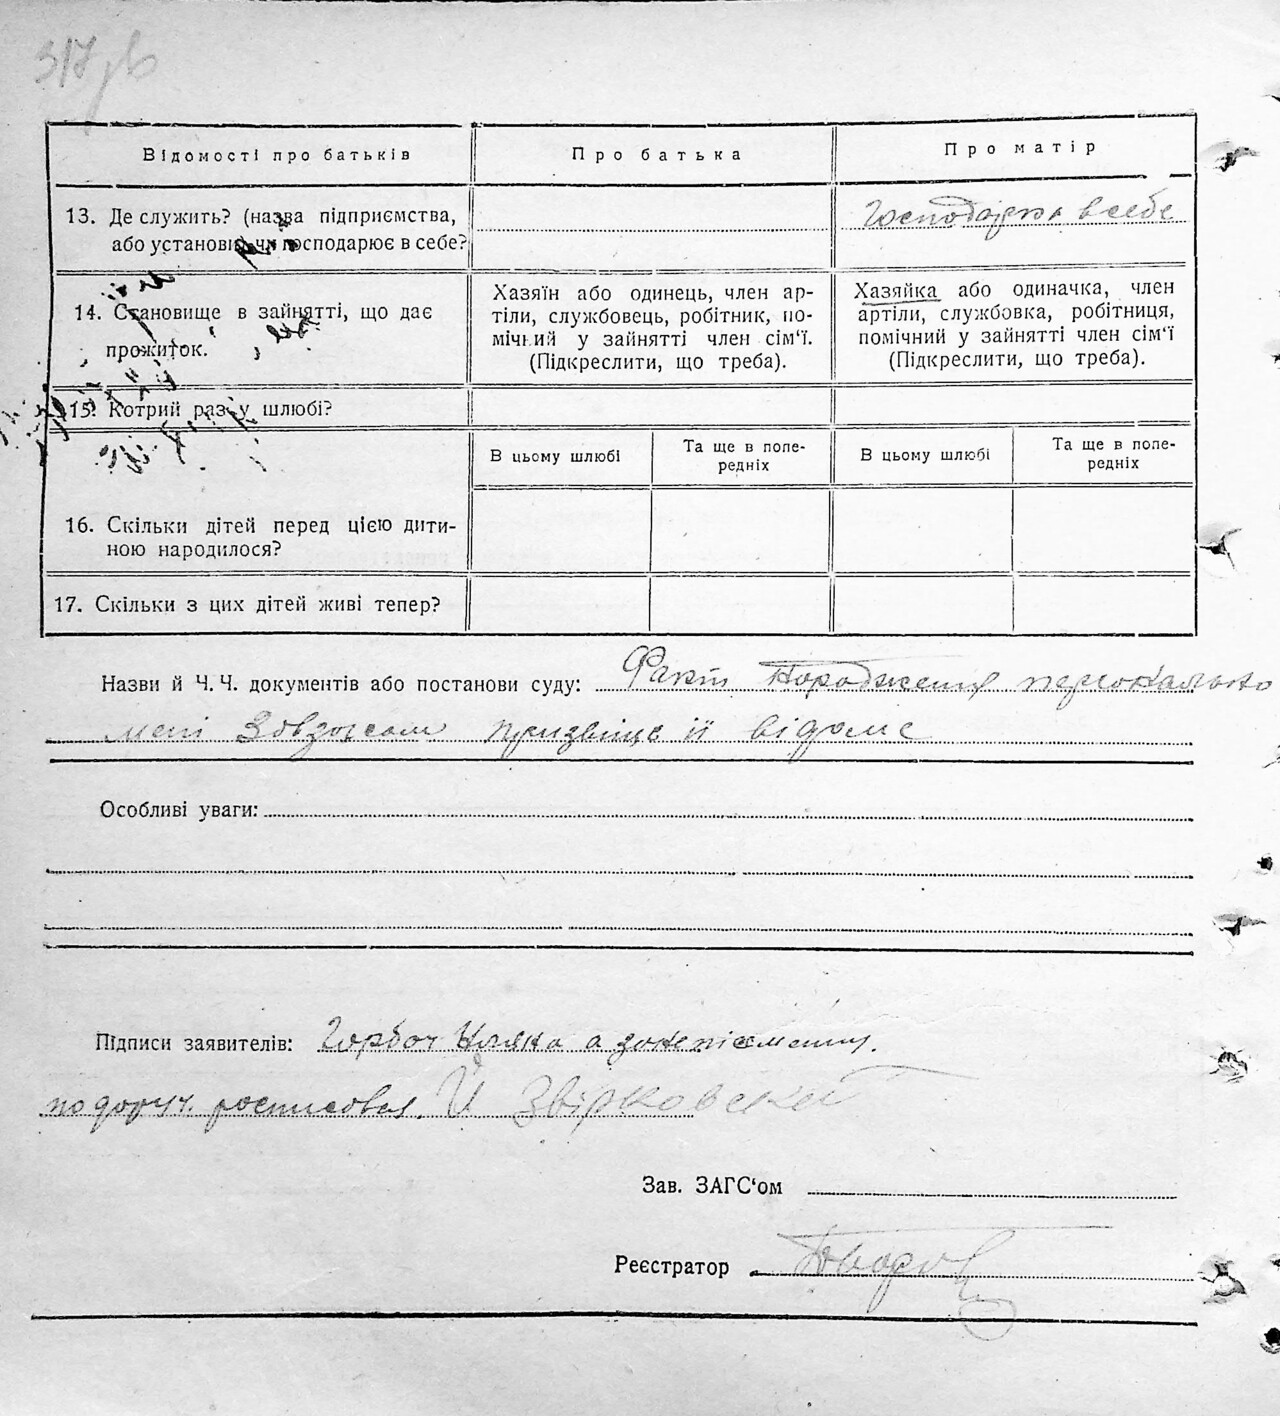 317зв
Відомості про батьків
Про батька
Про матір
13. Де служить? (назва підприємства,
або установи чи господарює в себе?
Господарює в себе
14. Становище в зайнятті, що дає
прожиток.
Хазяїн або одинець, член ар-
тіли, службовець, робітник, по-
мічний у зайнятті член сім'ї.
(Підкреслити, що треба).
Хазяйка або одиначка, член
артіли, службовка, робітниця,
помічний у зайнятті член сім'ї
(Підкреслити, що треба).
15. Котрий раз у шлюбі?
В цьому шлюбі
Та ще в попе-
редніх
В цьому шлюбі
Та ще в попе-
редніх
16. Скільки дітей перед цією дити-
ною народилося?
17. Скільки з цих дітей живі тепер?
Назви й Ч. Ч. документів або постанови суду: Факт народження персонально
мені призвіще її відоме
Особливі уваги:
Підписи заявителів: Горбач а
по доруч. росписовся. Звірковский
Зав. ЗАГС'ом
Реєстратор